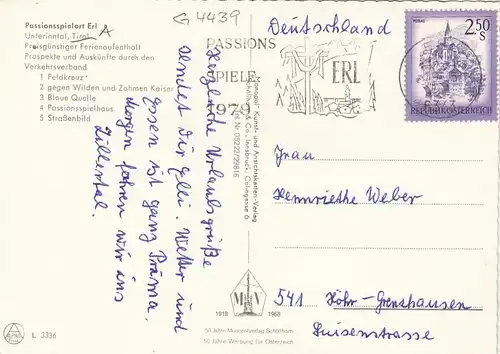 Passionsspielort Erl
Unterinntal, Tirol A
Preisgünstiger Ferienaufenthalt
Prospekte und Auskünfte durch den
Verkehrsverband
1 Feldkreuz
2 gegen Wilden und Zahmen Kaiser
3 Blaue Quelle
4 Passionsspielhaus
5 Straßenbild
G 4439
Deutschland
PASSIONS
SPIELE
1979
ERL
2.50 S
REPUBLIK ÖSTERREICH
Herzliche Urlaubsgrüße
sendet Dir Elli. Wetter und
Essen ist ganz Prima.
Morgen fahren wir ins
Zillertal.
Kunst- und Ansichtskarten-Verlag
& Co., Innsbruck, Colingasse 6
Tel. Nr. 05222/29816
Frau
Hennriethe Weber
541 Höhr-Grenzhausen
Luisenstrasse
M V
1918 1968
50 Jahre Monopolverlag Schöllhorn
50 Jahre Werbung für Österreich
L 3336